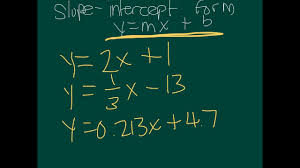 Slope-intercept form
y=mx+b
y=2x+1
y=1/3x-13
y=0.213x+4.7